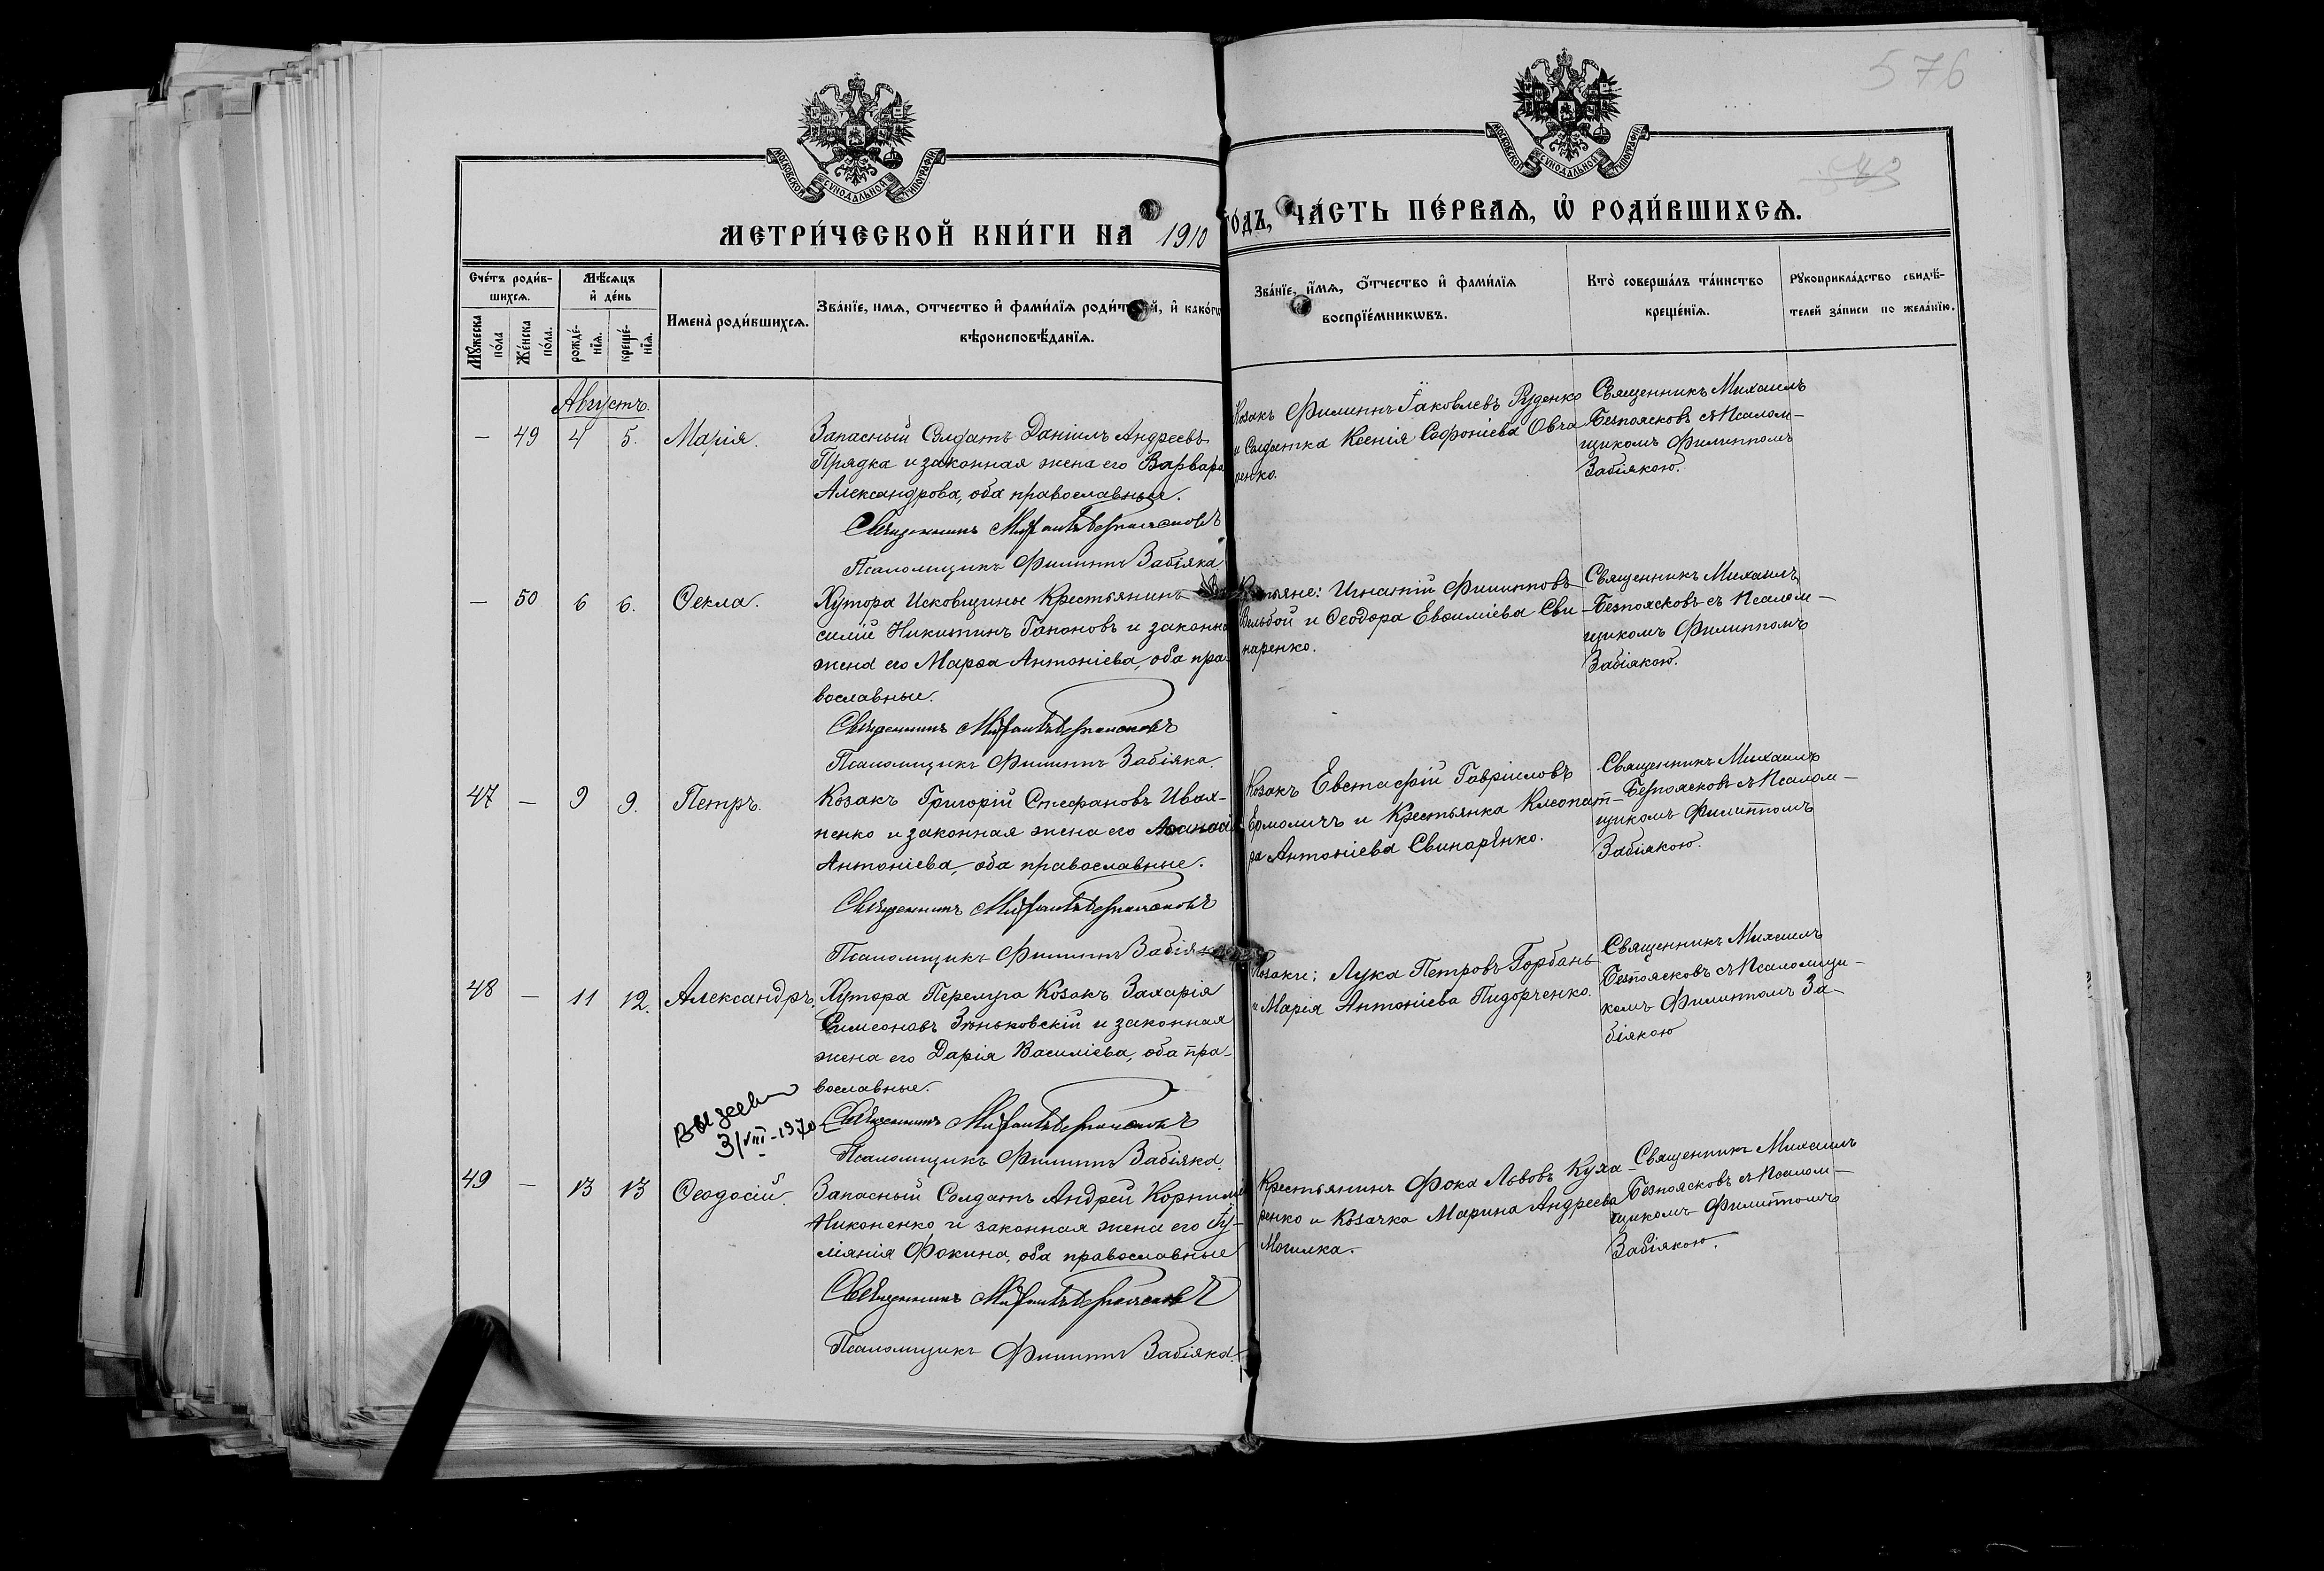 576
МОСКОВСКОЙ СѴНОДАЛЬНОЙ ТИПОГРАФІИ
МОСКОВСКОЙ СѴНОДАЛЬНОЙ ТИПОГРАФІИ
МЕТРИ́ЧЕСКОЙ КНИ́ГИ НА 1910 ГО́ДЪ, ЧА́СТЬ ПЕ́РВАѦ, Ѡ҆ РОДИ́ВШИХСѦ.
Сче́тъ роди́в-
шихсѧ.
Мꙋжеска
по́ла
Же́нска
по́ла.
Мѣ́сѧцъ
и҆ де́нь
рожде́-
нїѧ.
креще́-
нїѧ.
Имена̀ роди́вшихсѧ.
Зва́нїе, имѧ, ѻтчество и҆ фами́лїѧ роди́телей, и҆ како́гѡ
вѣроисповѣ́данїѧ.
Зва́нїе, и҆́мѧ, ѻ҆́тчество и҆ фами́лїѧ
воспрїе́мникѡвъ.
Кто̀ соверша́лъ та́инство
креще́нїѧ.
Рꙋкоприкла́дство свидѣ́-
телей за́писи по жела́нїю.
Августъ.
— 49 4 5. Марія.
Запасный Солдатъ Даніилъ Андреевъ
Прядка и законная жена его Варвара
Александрова, оба православные.
Священникъ Михаилъ Безпоясковъ
Псаломщикъ Филиппъ Забіяка.
Козакъ Филиппъ Іаковлевъ Руденко
и Солдатка Ксенія Софоніева Овча
ренко.
Священникъ Михаилъ
Безпоясковъ съ Псалом-
щикомъ Филиппомъ
Забіякою.
— 50 6 6. Ѳекла.
Хутора Исковщины Крестьянинъ Ва
силій Никитинъ Гапоновъ и законна
жена его Марѳа Антоніева, оба пра-
вославные.
Священникъ Михаилъ Безпоясковъ
Псаломщикъ Филиппъ Забіяка.
Крестьяне: Игнатій Филипповъ
Вельбой и Ѳеодора Евѳиміева Сви-
наренко.
Священникъ Михаилъ
Безпоясковъ съ Псалом-
щикомъ Филиппомъ
Забіякою.
47 — 9 9. Петръ.
Козакъ Григорій Стефановъ Ивах-
ненко и законная жена его
Антоніева, оба православные.
Священникъ Михаилъ Безпоясковъ
Псаломщикъ Филиппъ Забіяка
Козакъ Евстафій Гавріиловъ
Ермоличъ и Крестьянка Клеопат-
ра Антоніева Свинаренко.
Священникъ Михаилъ
Безпоясковъ съ Псалом-
щикомъ Филиппомъ
Забіякою.
48 — 11 12. Александръ.
Хутора Перелуга Козакъ Захарія
Симеоновъ Зѣньковскій и законная
жена его Дарія Василіева, оба пра-
вославные.
Священникъ Михаилъ Безпоясковъ
Псаломщикъ Филиппъ Забіяка.
3/VIII-1970
Козаки: Лука Петровъ Горбань
и Марія Антоніева Пидорченко.
Священникъ Михаилъ
Безпоясковъ съ Псаломщи-
комъ Филиппомъ За-
біякою
49 — 13 13 Ѳеодосій.
Запасный Солдатъ Андрей Корниліе
Никоненко и законная жена его Іу-
ліянія Фокина, оба православные
Священникъ Михаилъ Безпоясковъ
Псаломщикъ Филиппъ Забіяка.
Крестьянинъ Фока Львовъ Куха
ренко и Козачка Марина Андреева
Могилка.
Священникъ Михаилъ
Безпоясковъ съ Псалом-
щикомъ Филиппомъ
Забіякою.